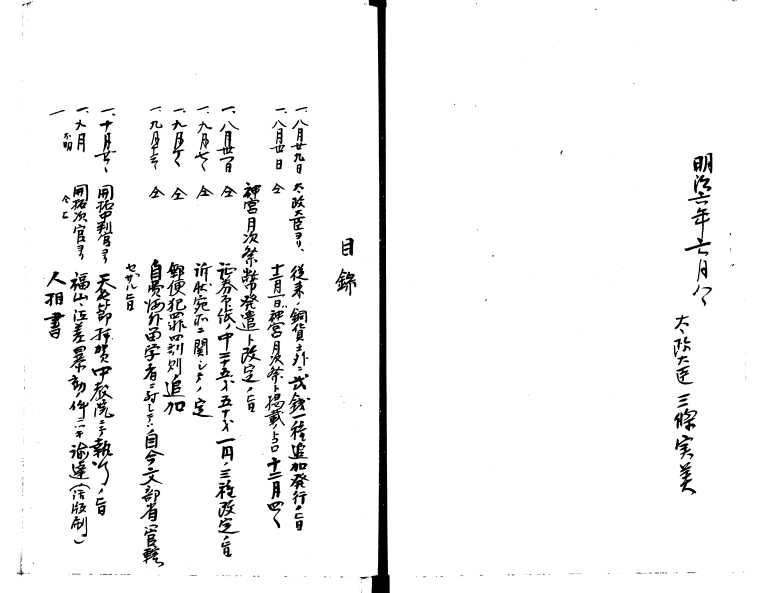 明治六年六月
太政大臣三條実美
目録
一、八月廿九日 太政大臣ヨリ、従来ノ銅貨ノ外ニ弐銭一種追加発行ノ旨
一、八月廿日 仝 十一月一日神宮月次祭ト掲載ノ 十二月
神宮月次祭幣帛発遣ト改定ノ旨
一、八月廿一日 仝 証券印紙ノ中二十五 五十 一円ノ三種改定ノ旨
一、九月 仝 訴状宛 ニ関シテノ定
一、九月 仝 郵便犯罪罰則ノ追加
一、九月十 仝 自費海外留学者ニ対シテハ自今文部省ニ管轄
セザル旨
一、十月廿 開拓中判官ヨリ 天長節拝賀中教院ニテ執行ノ旨
一、九月 不明 開拓次官ヨリ 福山、江差暴動ノ件ニツキ諭達(活版刷)
一 仝上 人相書